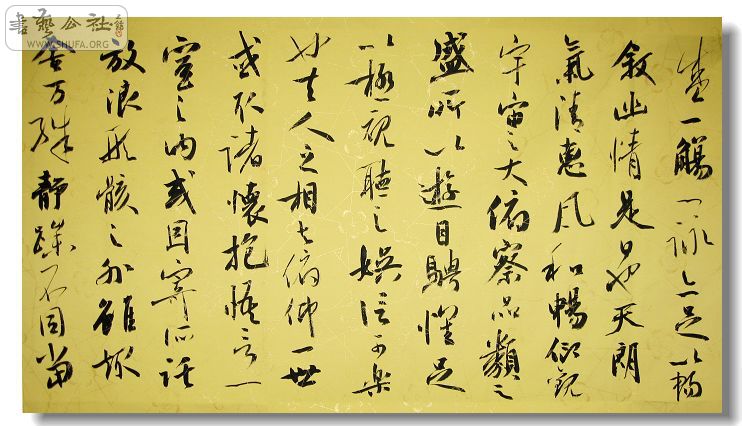 盛一觴一詠亦足以暢
叙幽情是日也天朗
氣清惠風和暢仰觀
宇宙之大俯察品類之
盛所以遊目騁懷足
以極視聽之娛信可樂
也夫人之相与俯仰一世
或取諸懷抱悟言一
室之内或因寄所託
放浪形骸之外雖趣
舍万殊靜躁不同當
書藝公社
WWW.SHUFA.ORG